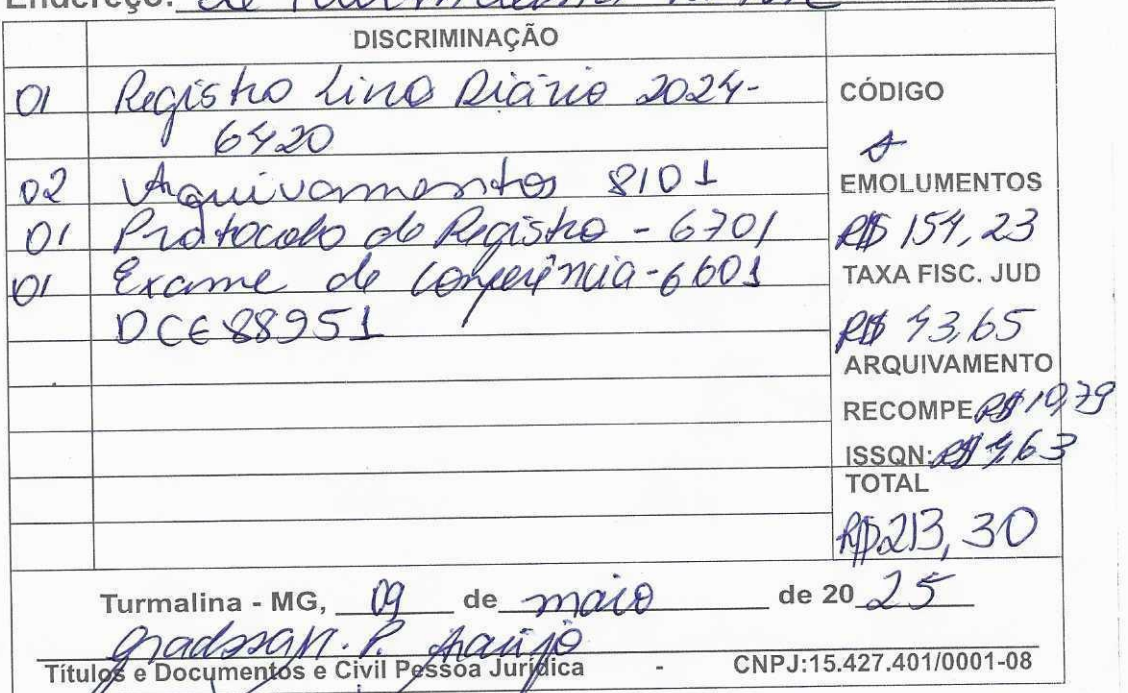 Endereço: de
DISCRIMINAÇÃO
01 Registro Livro Diário 2024-
6420
02 Arquivamentos 8101
01 Protocolo de Registro - 6701
01 Exame de Conferência-6601
DCE 88951
CÓDIGO
EMOLUMENTOS
R$ 154,23
TAXA FISC. JUD
R$ 43,65
ARQUIVAMENTO
RECOMPE R$ 10,79
ISSQN: R$ 4,63
TOTAL
R$ 213,30
Turmalina - MG, 09 de maio de 20 25
P. Araújo
Títulos e Documentos e Civil Pessoa Jurídica - CNPJ:15.427.401/0001-08